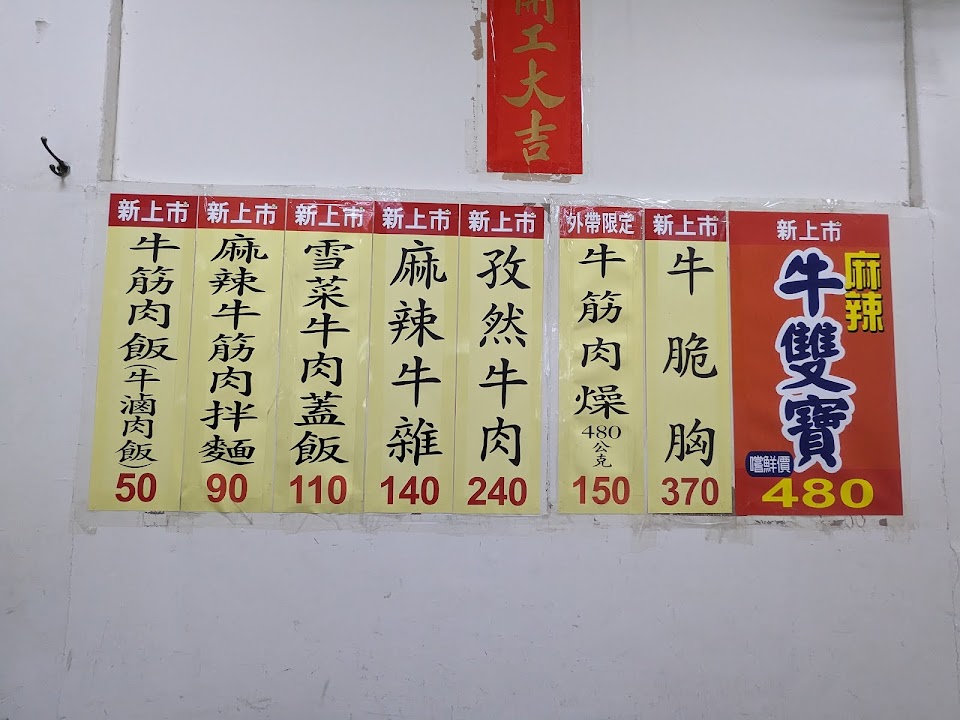 開工大吉
新上市
牛筋肉飯(牛滷肉飯)
50
新上市
麻辣牛筋肉拌麵
90
新上市
雪菜牛肉蓋飯
110
新上市
麻辣牛雜
140
新上市
孜然牛肉
240
外帶限定
牛筋肉燥480公克
150
新上市
牛脆胸
370
新上市
麻辣
牛雙寶
嚐鮮價
480